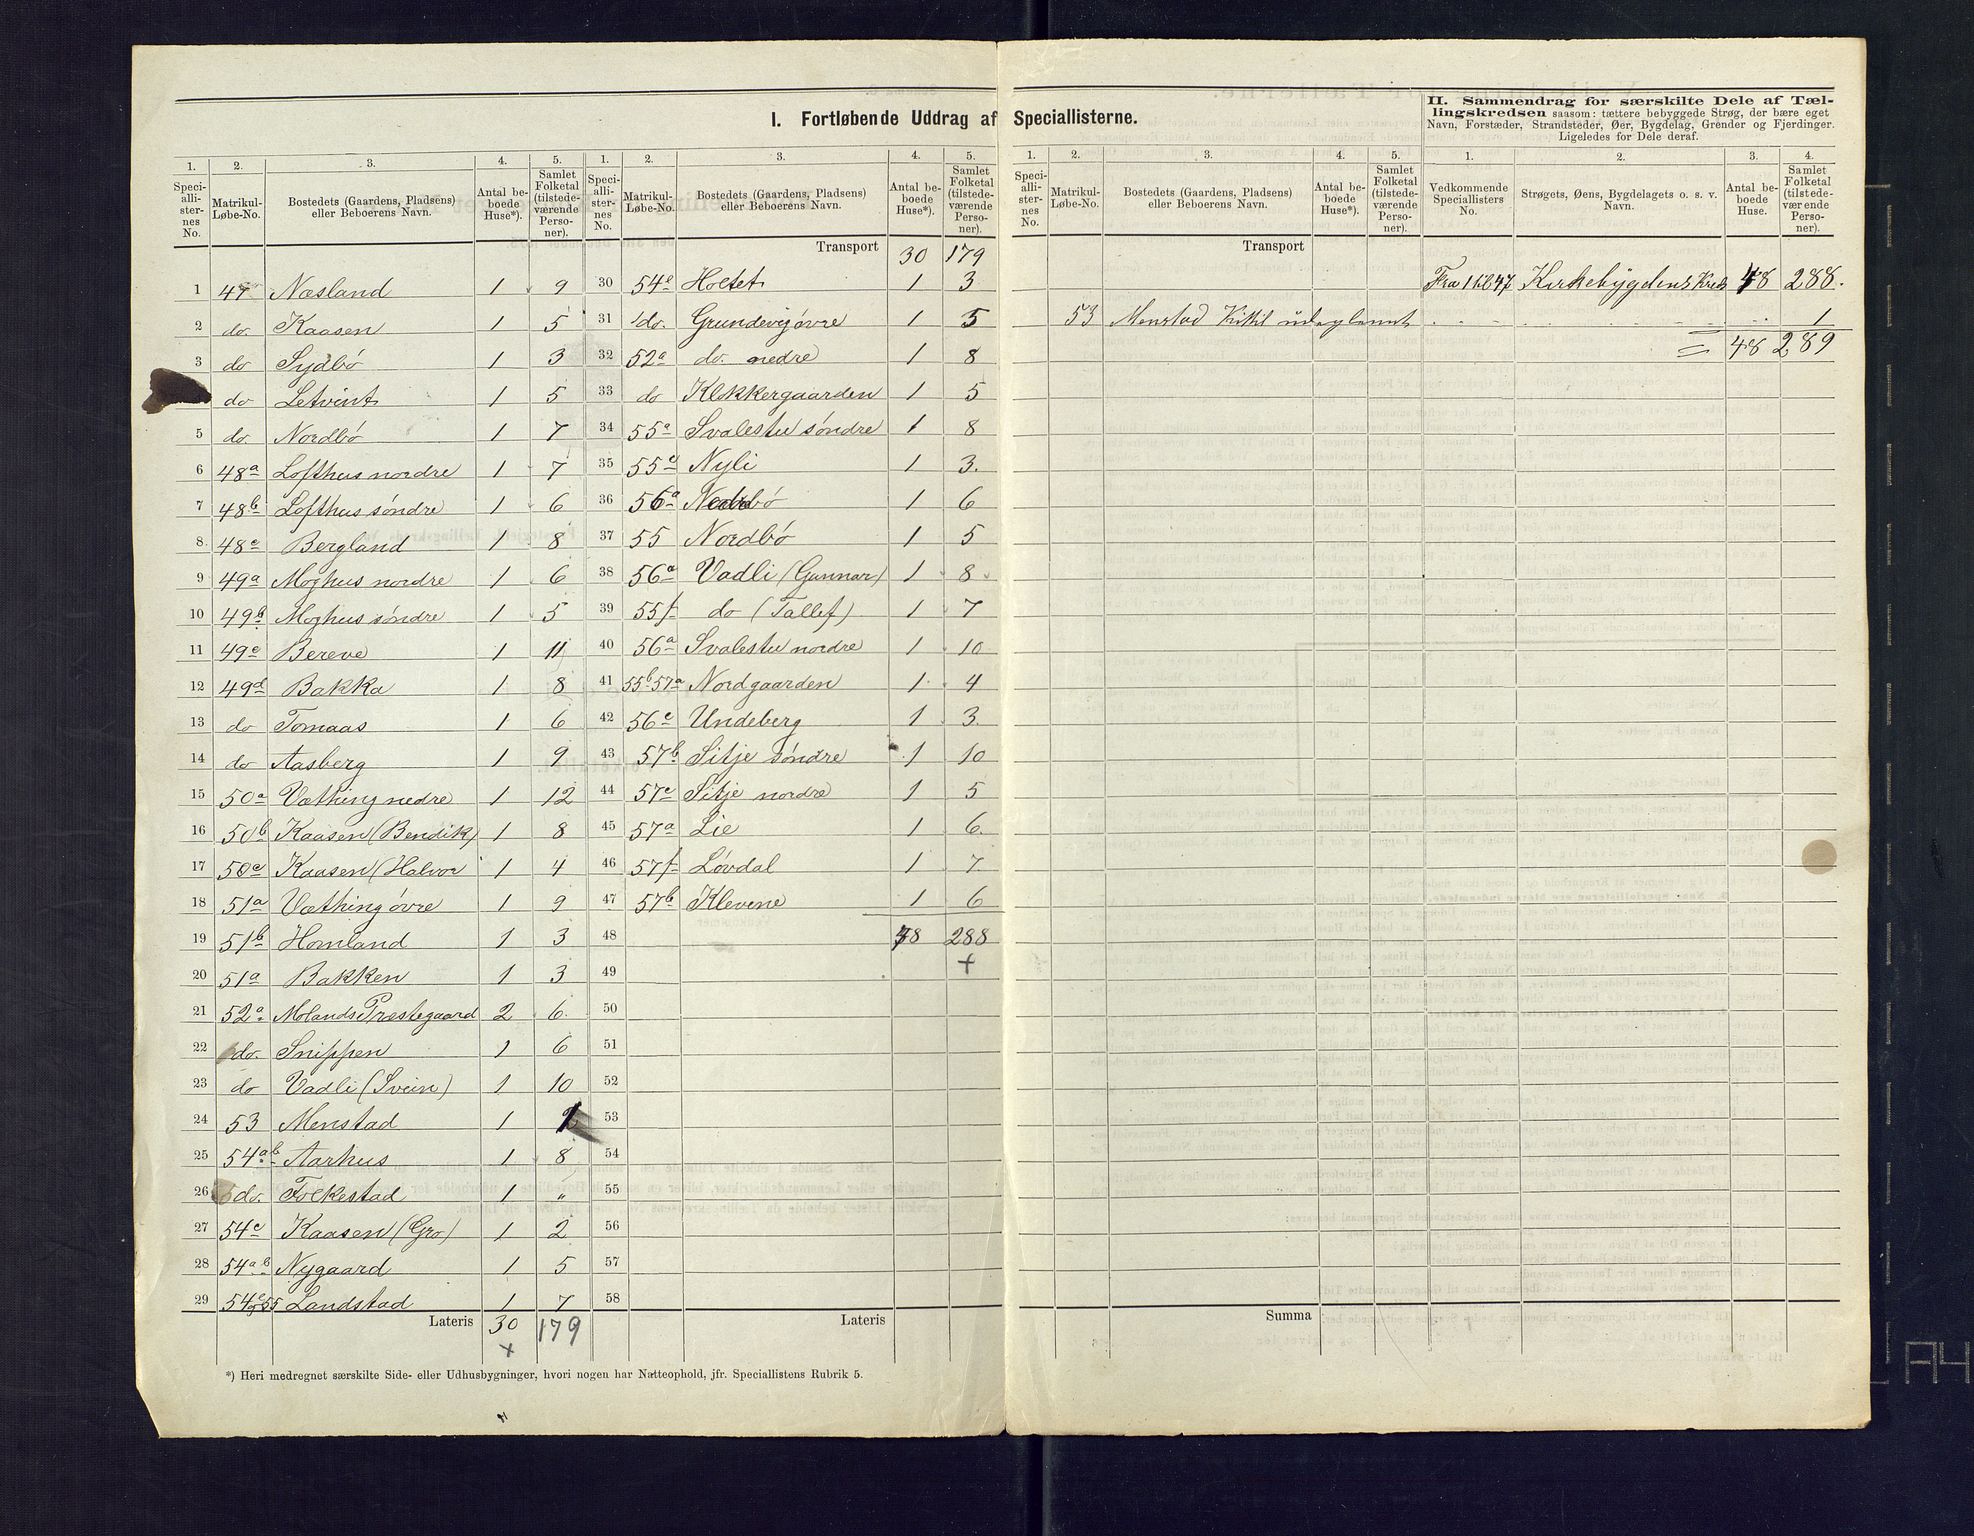 I. Fortløbende Uddrag af Speciallisterne.
II. Sammendrag for særskilte Dele af Tæl-
lingskredsen saasom: tættere bebyggede Strøg, der bære eget
Navn, Forstæder, Strandsteder, Øer, Bygdelag, Grender og Fjerdinger.
Ligeledes for Dele deraf.
1. 2. 3. 4. 5. 1. 2. 3. 4. 5.
Speci-alli-ster-nes No. Matrikul-Løbe-No. Bostedets (Gaardens, Pladsens) eller Beboerens Navn. Antal be-boede Huse*). Samlet Folketal (tilstede-værende Perso-ner). Speci-alli-ster-nes No. Matrikul-Løbe-No. Bostedets (Gaardens, Pladsens) eller Beboerens Navn. Antal be-boede Huse*). Samlet Folketal (tilstede-værende Perso-ner).
Transport 30 179
1 47 Næsland 1 9 30 54e Holtet 1 3
2 do. Kaasen 1 5 31 do. Grundevig øvre 1 5
3 do Sydbø 1 3 32 52a do. nedre 1 8
do Letvint 1 5 33 do Klokkergaarden 1 5
5 do. Nordbø 1 7 34 55a Svalestu søndre 1 8
6 48a Lofthus nordre 1 7 35 55e Nyli 1 3.
7 48b Lofthus søndre 1 6 36 56a 1 6
8. 48c Bergland 1 8 37 55 Nordbø 1 5
9 49a Moghus nordre 1 6 38 56a Vadli (Gunnar) 1 8
10 49b Moghus søndre 1 5 39 55f do (Tallef) 1 7
11 49c Bereve 1 11 40 56a Svalestu nordre 1 10
12 49d Bakka 1 8 41 55b 57a Nordgaarden 1 4
13 do Tomaas 1 6 42 56c Undeberg 1 3.
14 do Aasberg 1 9 43 57b Sitje søndre 1 10
15 50a Væthing nedre 1 12 44 57c Sitje nordre 1 5
16 50b Kaasen (Bendik) 1 8 45 57a Lie 1 6.
17 50c Kaasen (Halvor 1 4 46 57f Løvdal 1 7
18 51a Væthing øvre 1 9 47 57b Klevene 1 6
19 51b Homland 1 3 48 48 288
20 51a Bakken 1 3 49 +
21 52a Molands Prestegaard 2 6. 50
22 do. Snippen 1 6 51
23 do Vadli (Svein) 1 10 52
24 53 Menstad 1 53
25 54a b Aarhus 1 8 54
26 do. Folkestad 1 „ 55
27 54c Kaasen (Gro) 1 2 56
28 54a b Nygaard 1 5 57
29 55 Landstad 1 7 58
Lateris 30 179 Lateris
+
*) Heri medregnet særskilte Side- eller Udhusbygninger, hvori nogen har Natteophold, jfr. Speciallistens Rubrik 5.
1. 2. 3. 4. 5. 1. 2. 3. 4.
Speci-alli-ster-nes No. Matrikul-Løbe-No. Bostedets (Gaardens, Pladsens) eller Beboerens Navn. Antal be-boede Huse*). Samlet Folketal (tilstede-værende Perso-ner). Vedkommende Speciallisters No. Strøgets, Øens, Bygdelagets o. s. v. Navn. Antal be-boede Huse. Samlet Folketal (tilstede-værende Perso-ner).
Transport
Fra 1 til 47 Kirkebygdens Kreds 48 288.
53 Menstad Kittil 1
= 48 289
Summa